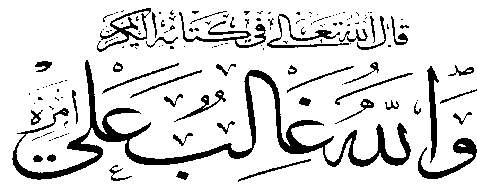 قال الله تعالى في كتابه الكريم
والله غالب على أمره